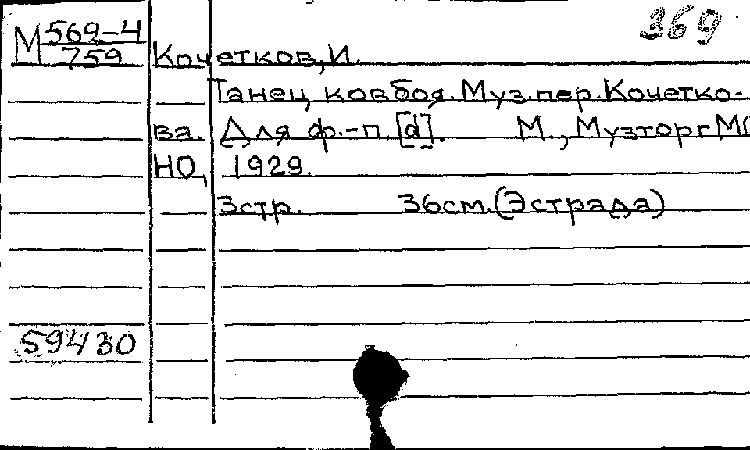 369
М 569-4
759
Кочетков, И.
Танец ковбоя. Муз. пер. Кочетко-
ва. Для ф.-п. [d]. М., Музторг МО
НО, 1929.
3 стр. 36 см. (Эстрада)
59430